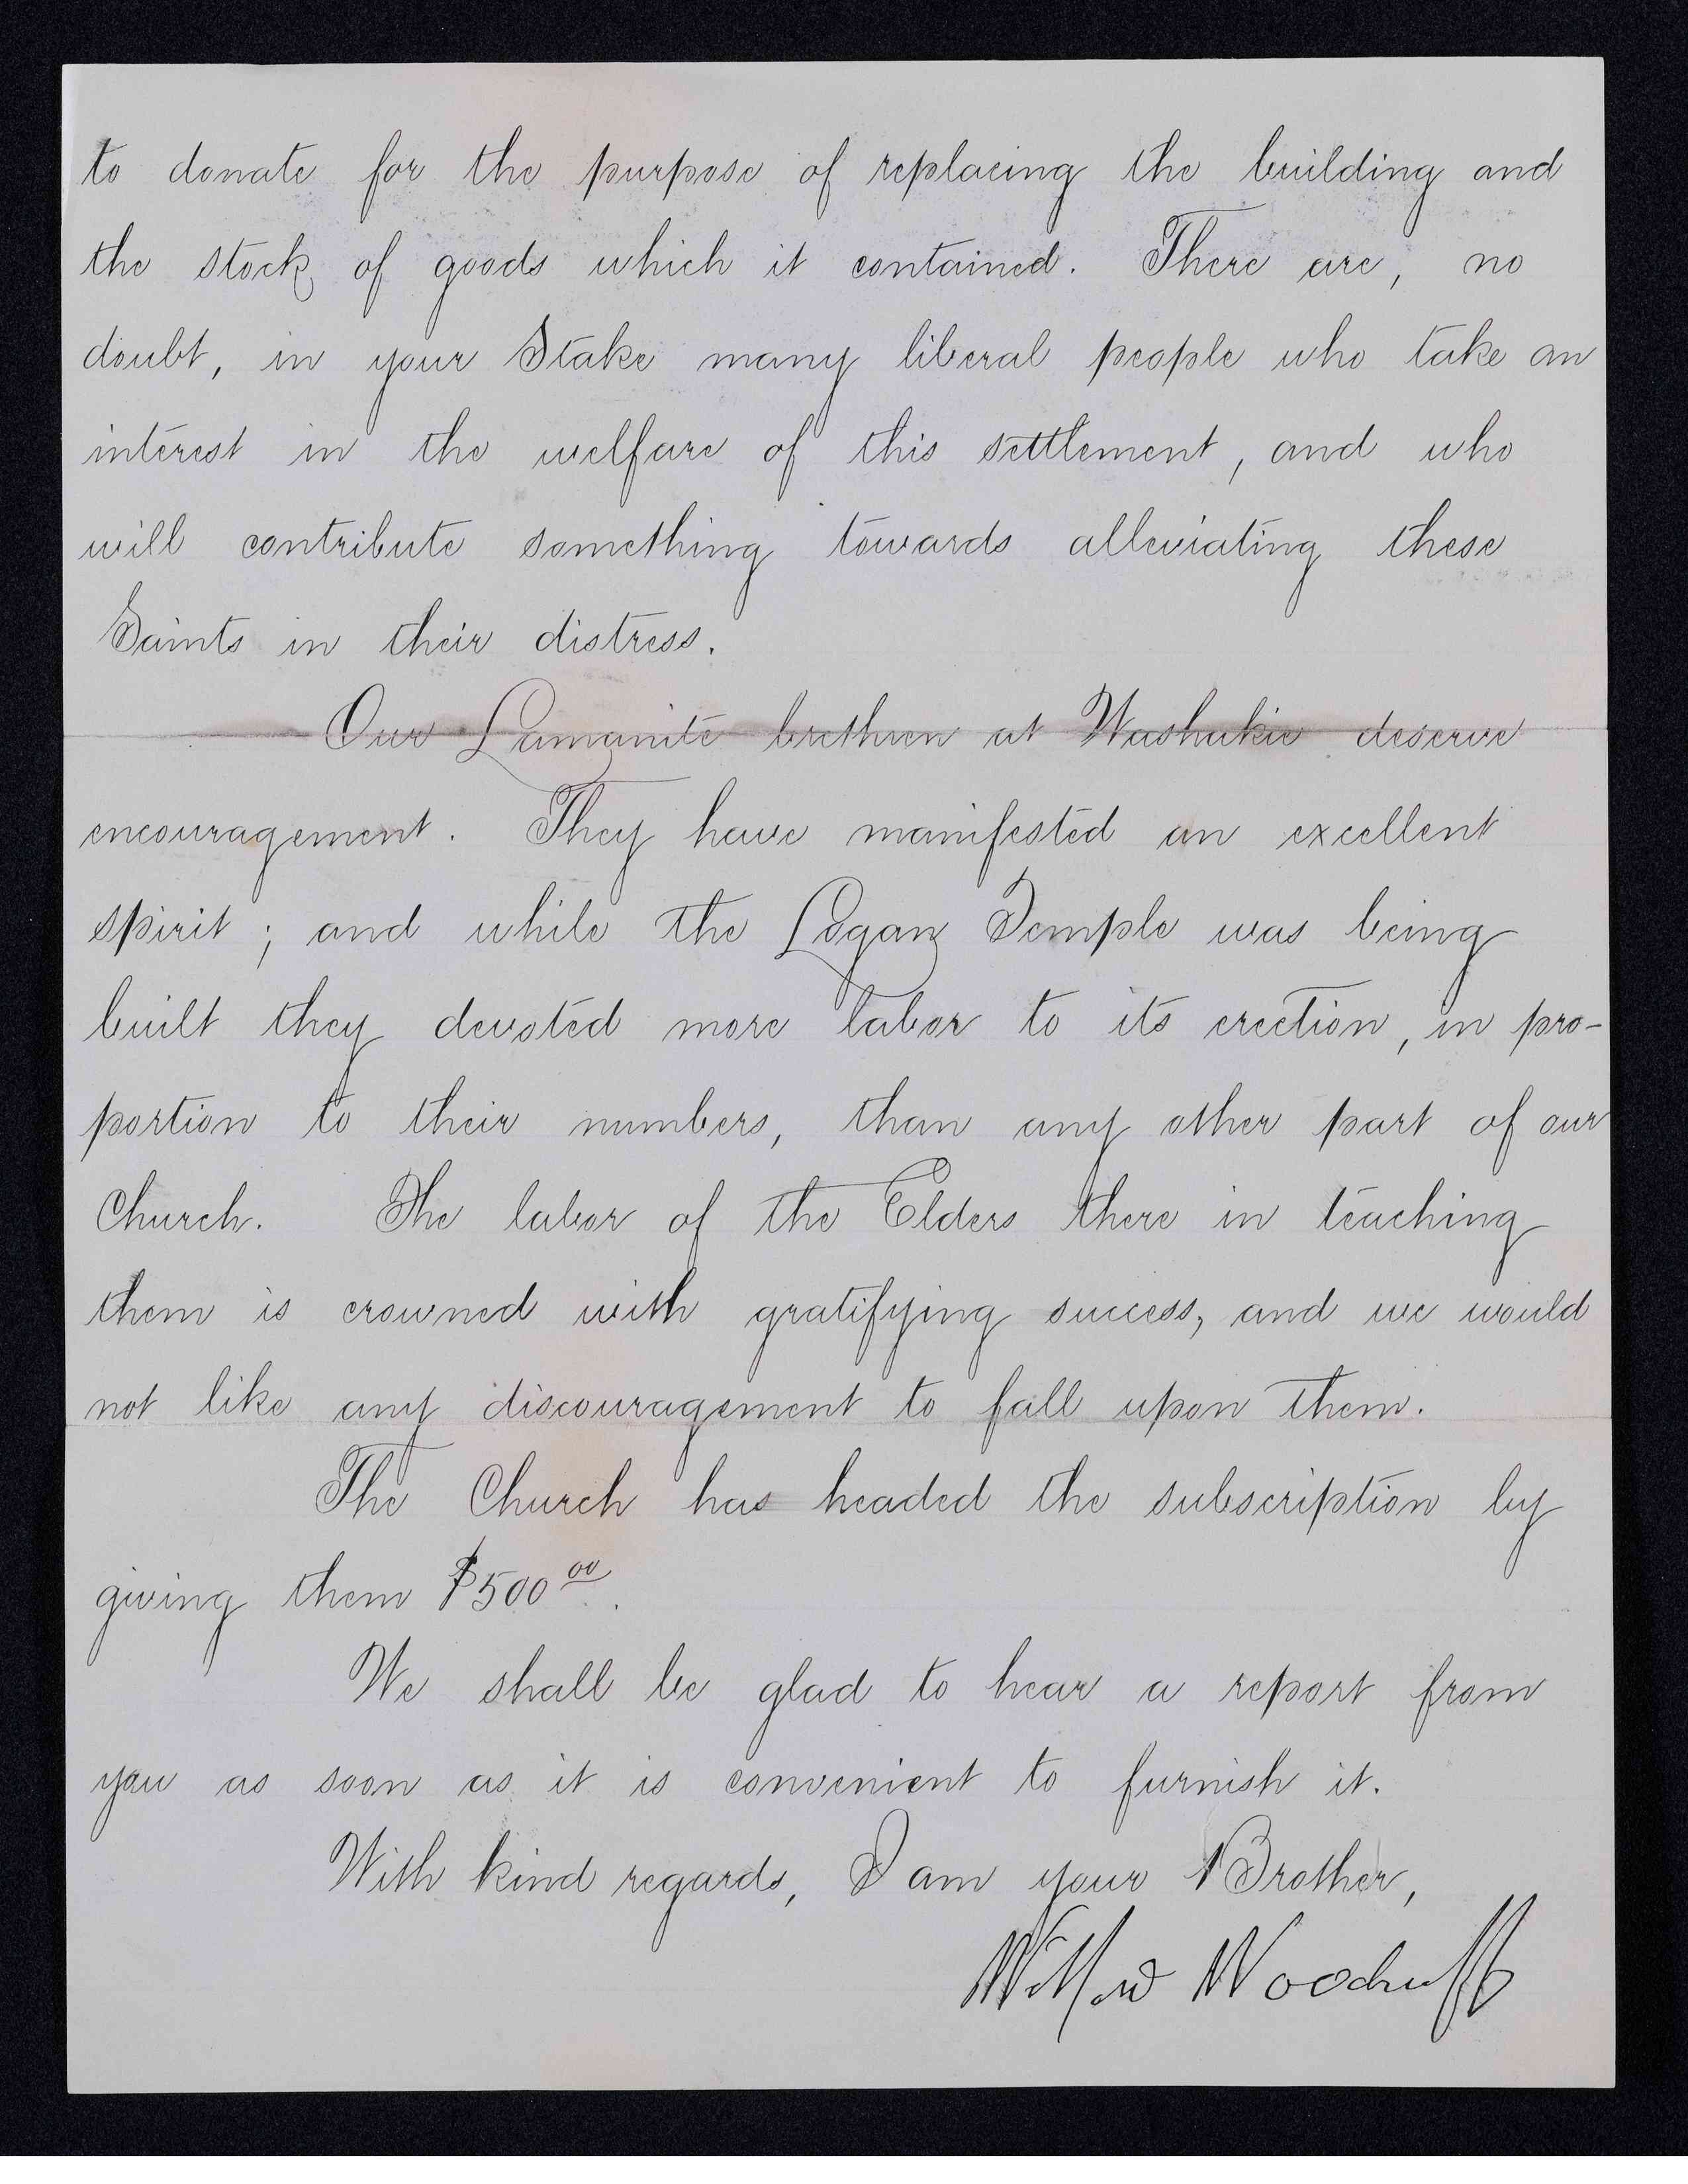 to donate for the purpose of replacing the building and
the stock of goods which it contained. There are, no
doubt, in your Stake many liberal people who take an
interest in the welfare of this settlement, and who
will contribute something towards alleviating these
Saints in their distress.
Our Lamanite brethren at Washakie deserve
encouragement. They have manifested an excellent
spirit; and while the Logan Temple was being
built they devoted more labor to its erection, in pro-
portion to their numbers, than any other part of our
Church. The labor of the Elders there in teaching
them is crowned with gratifying success, and we would
not like any discouragement to fall upon them.
The Church has headed the subscription by
giving them $500 00.
We shall be glad to hear a report from
you as soon as it is convenient to furnish it.
With kind regards, I am your Brother,
Wilford Woodruff